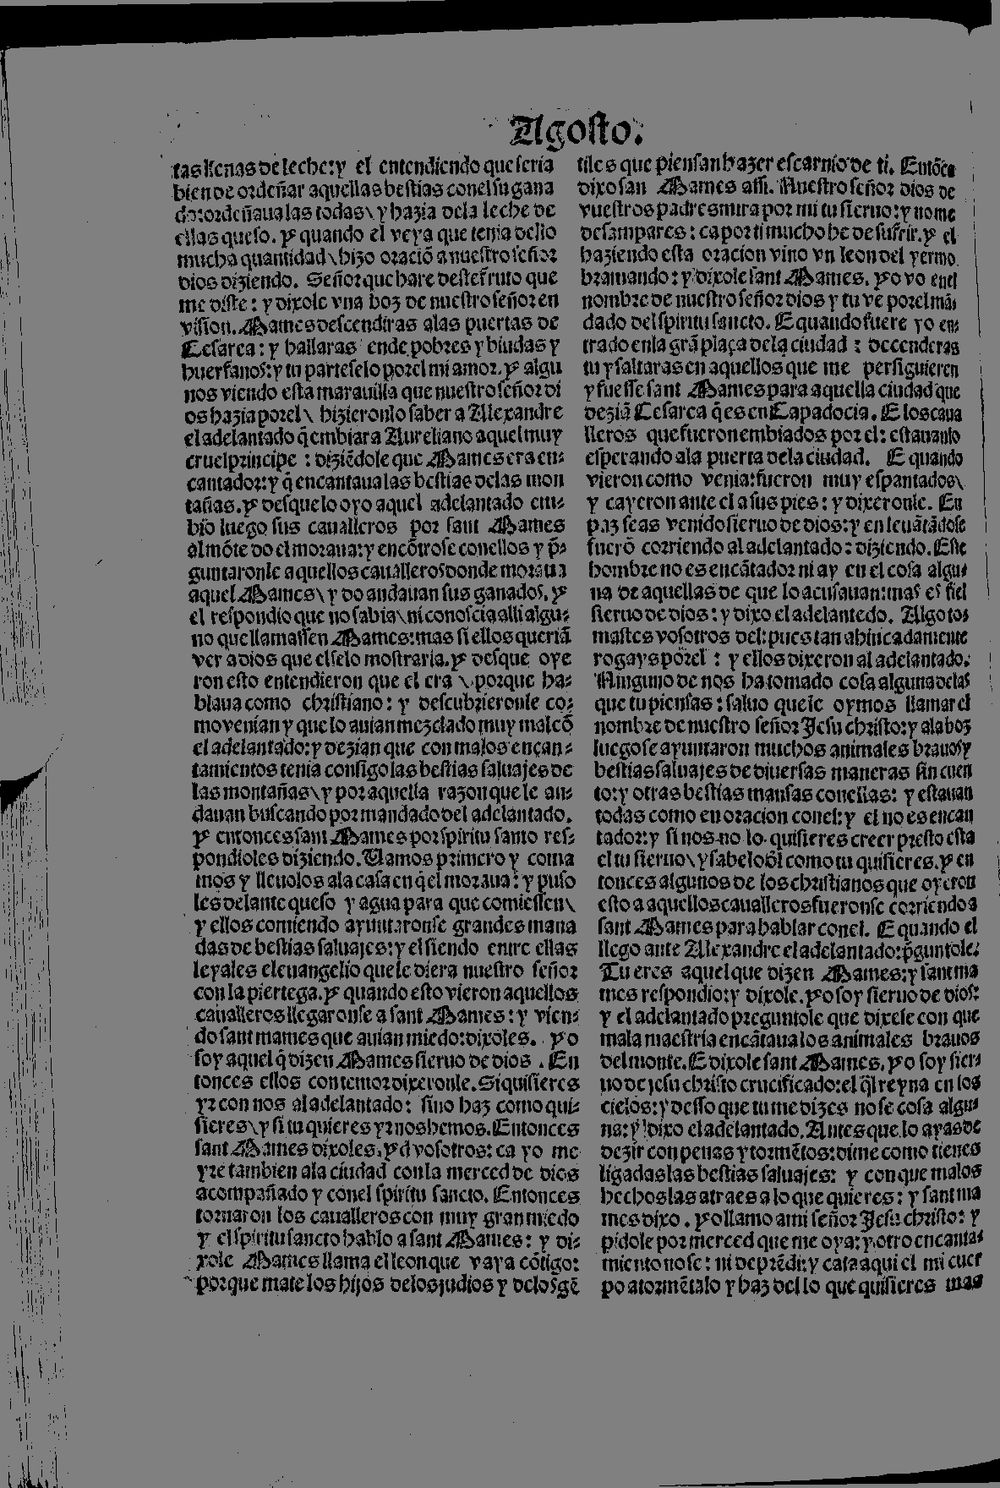 Agosto.
tas llenas de leche: y el entendiendo que seria
bien de ordeñar aquellas bestias conel su gana
do: ordeñaua las todas \ y hazia dela leche de
ellas queso. Y quando el veya que tenia dello
mucha quantidad \ hizo oració a nuestro señor
dios diziendo. Señor que hare deste fruto que
me diste: y dixole vna boz de nuestro señor en
vision. Mames descendiras alas puertas de
Cesarea: y hallaras ende pobres y biudas y
huerfanos: y tu parteselo por el mi amor. Y algu
nos viendo esta marauilla que nuestro señor di
os hazia por el \ hizieronlo saber a Alexandre
el adelantado q̃ embiara Aureliano aquel muy
cruel principe: diziẽdole que Mames era en-
cantador: y q̃ encantaua las bestias delas mon
tañas. Y desque lo oyo aquel adelantado em-
bio luego sus caualleros por sant Mames
al mõte do el moraua: y encõtrose conellos y p̃-
guntaronle aquellos caualleros donde moraua
aquel Mames \ y do andauan sus ganados. Y
el respondio que no sabia \ ni conoscia alli algu-
no que llamassen Mames: mas si ellos queriã
ver a dios que el selo mostraria. Y desque oye
ron esto entendieron que el era \ porque ha-
blaua como christiano: y descubrieronle co-
mo venian y que lo auian mezclado muy mal cõ
el adelantado: y dezian que con malos encan-
tamientos tenia consigo las bestias saluajes de
las montañas \ y por aquella razon que le an-
dauan buscando por mandado del adelantado.
Y entonces sant Mames por spiritu santo res-
pondioles diziendo. Vamos primero y coma
mos y lleuolos ala casa en q̃ el moraua: y puso
les delante queso y agua para que comiessen \
y ellos comiendo ayuntaronse grandes mana
das de bestias saluajes: y el siendo entre ellas
leyales el euangelio que le diera nuestro señor
con la piertega. Y quando esto vieron aquellos
caualleros llegaronse a sant Mames: y vien-
do sant mames que auian miedo: dixoles. Yo
soy aquel q̃ dizen Mames sieruo de dios. En
tonces ellos con temor dixeronle. Si quisieres
yr con nos al adelantado: sino haz como qui-
sieres \ y si tu quieres yr nos hemos. Entonces
sant Mames dixoles. Yd vosotros: ca yo me
yre tambien ala ciudad con la merced de dios
acompañado y conel spiritu sancto. Entonces
tornaron los caualleros con muy gran miedo
y el spiritu sancto hablo a sant Mames: y di-
xole Mames llama el leon que vaya cõtigo:
porque mate los hijos delos judios y delos gẽ
tiles que piensan hazer escarnio de ti. Entõce
dixo san Mames assi. Nuestro señor dios de
vuestros padres mira por mi tu sieruo: y no me
desampares: ca por ti mucho he de sufrir. Y el
haziendo esta oracion vino vn leon del yermo
bramando: y dixole sant Mames. Yo vo enel
nombre de nuestro señor dios y tu ve por el mã-
dado del spiritu sancto. E quando fuere yo en-
trado enla grã plaça dela ciudad: decenderas
tu y saltaras en aquellos que me persiguieren
y fuesse sant Mames para aquella ciudad que
deziã Cesarea q̃ es en Capadocia. E los caua
lleros que fueron embiados por el: estauanlo
esperando ala puerta dela ciudad. E quando
vieron como venia: fueron muy espantados \
y cayeron ante el a sus pies: y dixeronle. En
paz seas venido sieruo de dios: y en leuãtãdose
fuerõ corriendo al adelantado: diziendo. Este
hombre no es encãtador ni ay en el cosa algu-
na de aquellas de que lo acusauan: mas es fiel
sieruo de dios: y dixo el adelantedo. Algo to-
mastes vosotros del: pues tan ahincadamente
rogays por el: y ellos dixeron al adelantado.
Ninguno de nos ha tomado cosa alguna delas
que tu piensas: saluo que le oymos llamar el
nombre de nuestro señor Jesu christo: y ala boz
luego se ayuntaron muchos animales brauos y
bestias saluajes de diuersas maneras sin cuen
to: y otras bestias mansas conellas: y estauan
todas como en oracion conel: y el no es encan
tador: y si nos no lo quisieres creer presto esta
el tu sieruo \ y sabelo õl como tu quisieres. Y en
tonces algunos de los christianos que oyeron
esto a aquellos caualleros fueronse corriendo a
sant Mames para hablar conel. E quando el
llego ante Alexandre el adelantado: p̃guntole.
Tu eres aquel que dizen Mames: y sant ma
mes respondio: y dixole. Yo soy sieruo de dios:
y el adelantado preguntole que dixele con que
mala maestria encãtaua los animales brauos
del monte. E dixole sant Mames. Yo soy sier-
uo de jesu christo crucificado: el q̃l reyna en los
cielos: y desso que tu me dizes no se cosa algu-
na: y dixo el adelantado. Antes que lo ayas de
dezir con penas y tormẽtos: dime como tienes
ligadas las bestias saluajes: y con que malos
hechos las atraes a lo que quieres: y sant ma
mes dixo. Yo llamo a mi señor Jesu christo: y
pidole por merced que me oya: y otro encanta-
miento no se: ni deprẽdi: y cata aqui el mi cuer
po atormẽtalo y haz del lo que quisieres mas